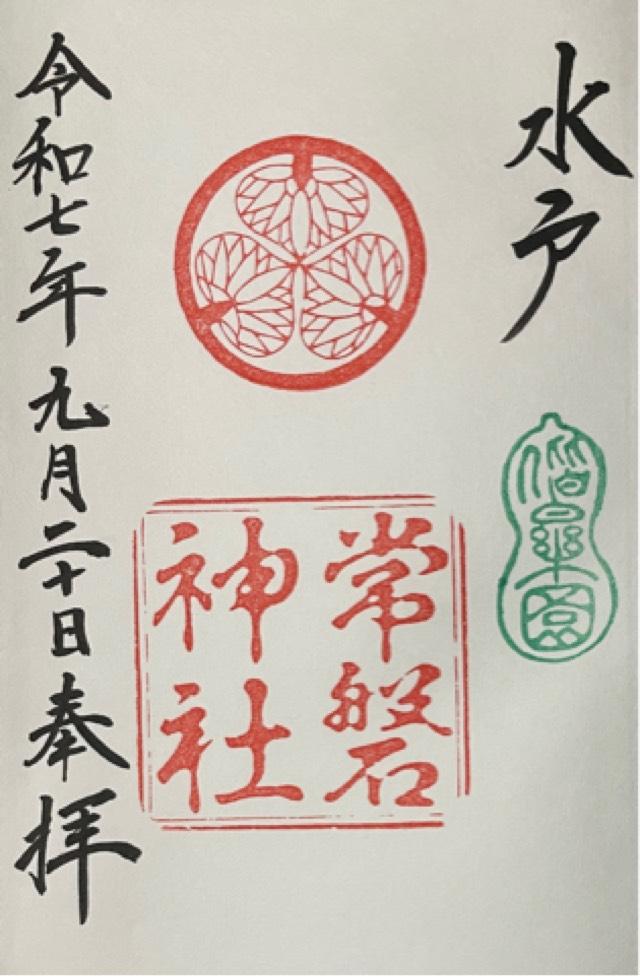 水戸
偕楽園
常磐
神社
令和七年九月二十日奉拝